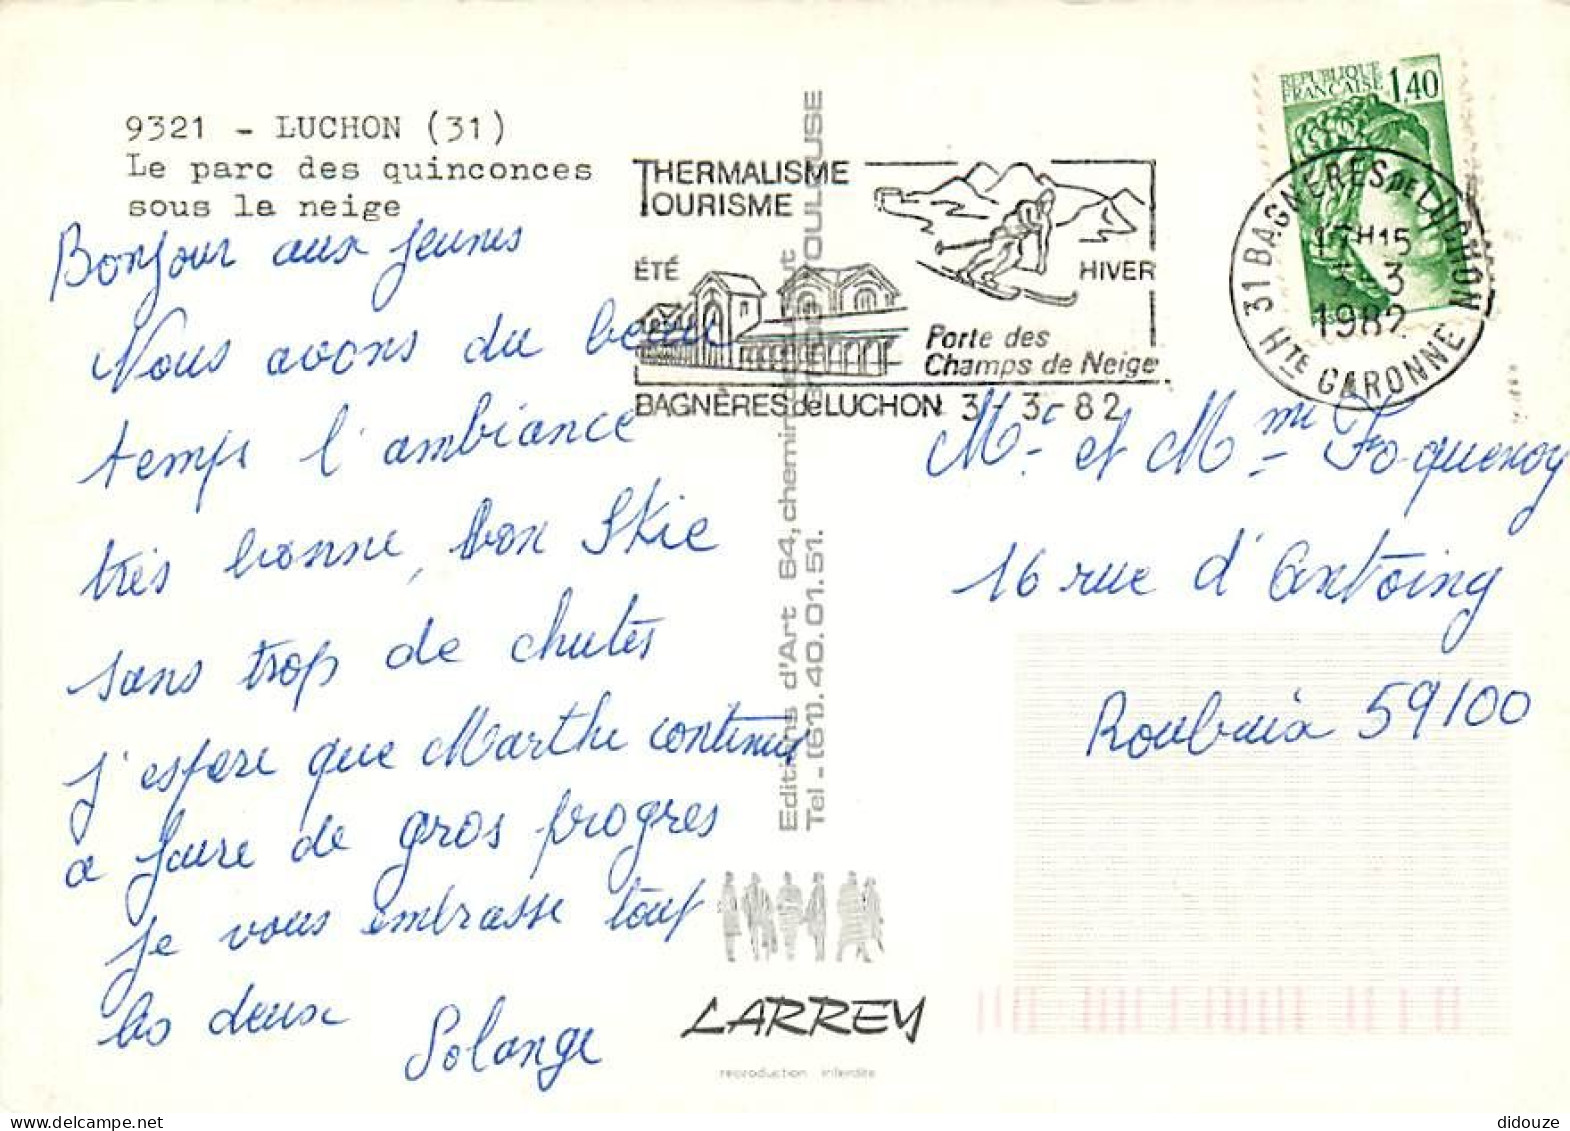 9321 - LUCHON (31)
Le parc des quinconces
sous la neige
Bonjour aux jeunes
Nous avons du beau
temps l'ambiance
très bonne, bon Skie
sans trop de chutes
j'espere que Marthe continue
a faire de gros progres
je vous embrasse tout
les deux
Solange
THERMALISME
TOURISME
ÉTÉ
HIVER
Porte des
Champs de Neige
BAGNÈRES de LUCHON 3-3-82
REPUBLIQUE
FRANÇAISE
1,40
31 BAGNERES DE LUCHON
17H15
3-3
1982
HTE GARONNE
Mr et Mme Fo-quenoy
16 rue d'Antoing
Roubaix 59100
Editions d'Art 64, chemin
TOULOUSE
Tel - (61). 40.01.51.
LARREY
reproduction interdite
didouze